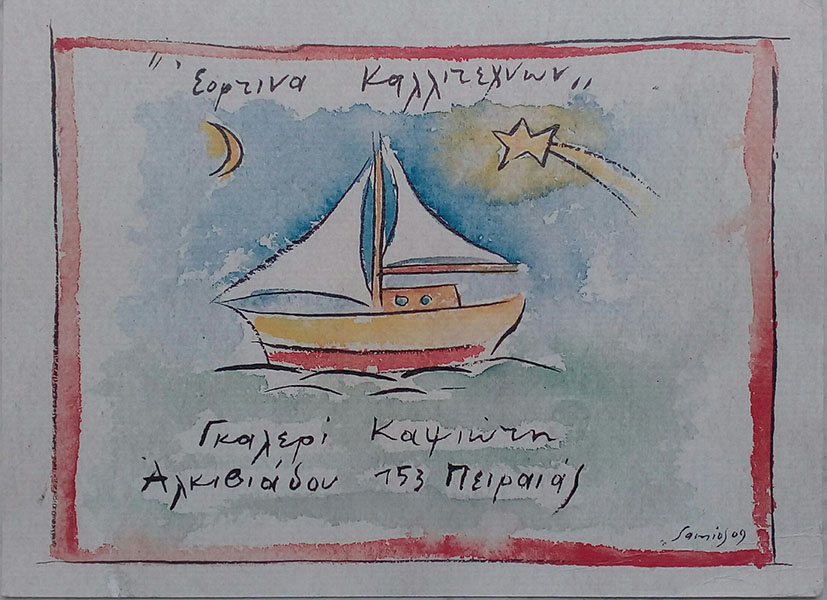 "Εορτινά Καλλιτεχνών"
Γκαλερί Καψιώτη
Αλκιβιάδου 153 Πειραιάς
Samios 09